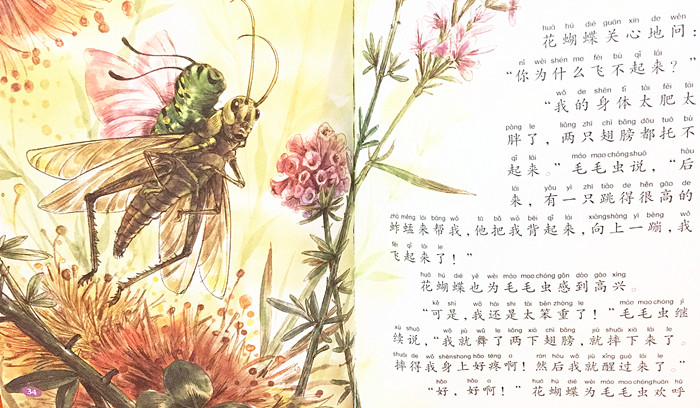 huā hú dié guān xīn de wèn
花蝴蝶关心地问：
nǐ wèi shén me fēi bù qǐ lái
“你为什么飞不起来？”
wǒ de shēn tǐ tài féi tài
“我的身体太肥太
pàng le liǎng zhī chì bǎng dōu tuō bù
胖了，两只翅膀都托不
qǐ lái máo mao chóng shuō hòu
起来。”毛毛虫说，“后
lái yǒu yì zhī tiào de hěn gāo de
来，有一只跳得很高的
zhà měng lái bāng wǒ tā bǎ wǒ bēi qǐ lái xiàng shàng yí bèng wǒ
蚱蜢来帮我，他把我背起来，向上一蹦，我
fēi qǐ lái le
飞起来了！”
huā hú dié yě wèi máo mao chóng gǎn dào gāo xìng
花蝴蝶也为毛毛虫感到高兴。
kě shì wǒ hái shi tài bèn zhòng le máo mao chóng jì
“可是，我还是太笨重了！”毛毛虫继
xù shuō wǒ jiù wǔ le liǎng xià chì bǎng jiù shuāi xià lái le
续说，“我就舞了两下翅膀，就摔下来了。
shuāi de wǒ shēn shang hǎo téng a rán hòu wǒ jiù xǐng guò lái le
摔得我身上好疼啊！然后我就醒过来了。”
hǎo hǎo a huā hú dié wèi máo mao chóng huān hū
“好，好啊！”花蝴蝶为毛毛虫欢呼
34